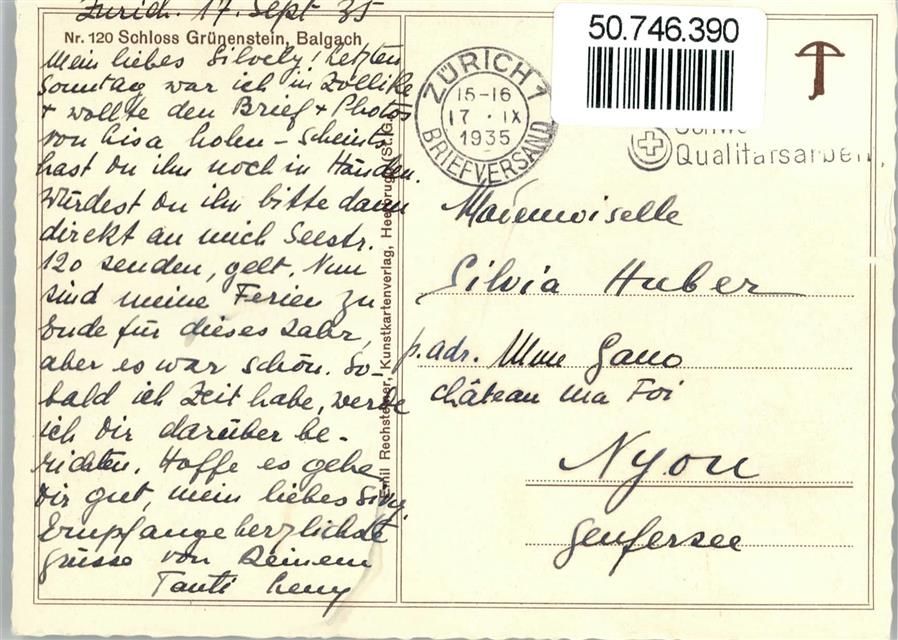 Zürich. 17. Sept 35
Nr. 120 Schloss Grünenstein, Balgach
Mein liebes Silvely! Letzten
Sonntag war ich in Zollike
+ wollte den Brief + Photos
von Lisa holen – Scheints
hast Du ihn noch in Händen.
Würdest Du ihn bitte dann
direkt an mich Seestr.
120 senden, gelt. Nun
sind meine Ferien zu
Ende für dieses Jahr,
aber es war schön. So-
bald ich Zeit habe, werde
ich Dir darüber be-
richten. Hoffe es gehe
Dir gut, mein liebes
Empfange herzlichste
Grüsse von Deinem
Tanti Leny
Emil Rechsteiner, Kunstkartenverlag, Heerbrugg (St. G.)
ZÜRICH 1
15-16
17 · IX
1935
BRIEFVERSAND
50.746.390
Qualitätsarbeit
Mademoiselle
Silvia Huber
p. adr. Mme
château ma Foi
Nyon
Genfersee